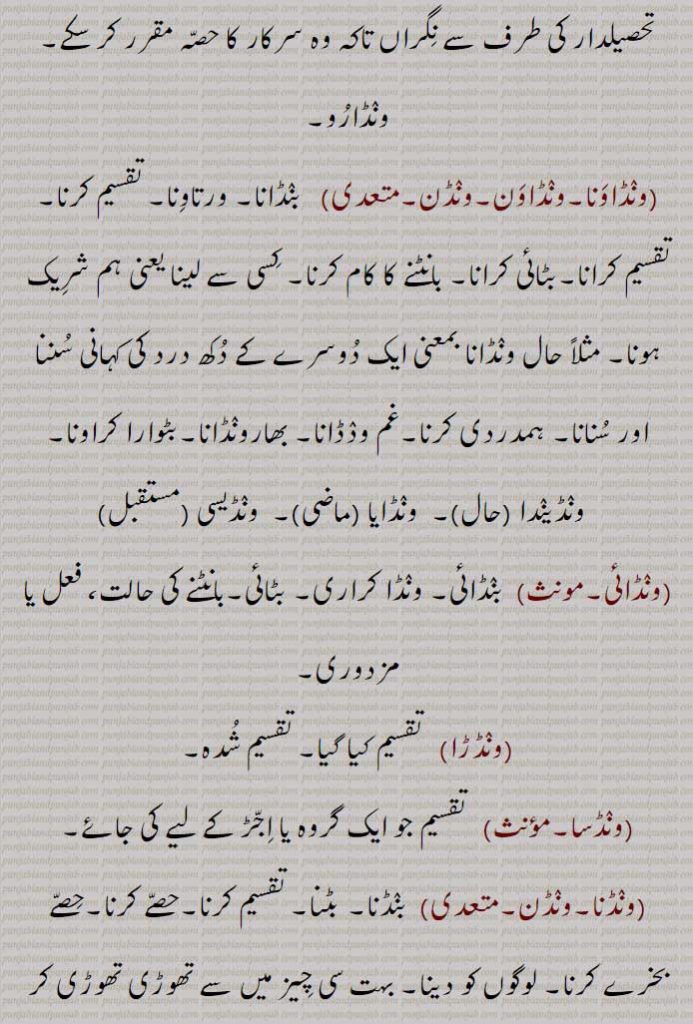 تحصیلدار کی طرف سے نِگراں تاکہ وہ سرکار کا حصّہ مقرر کر سکے۔
ونْڈارُو۔
(ونْڈاوَنا۔ونْڈاوَن۔ونْڈن۔متعدی) بنْڈانا۔ ورتاوِنا۔ تقسیم کرنا۔
تقسیم کرانا۔بٹائی کرانا۔ بانٹنے کا کام کرنا۔ کِسی سے لینا یعنی ہم شرِیک
ہونا۔ مثلاً حال ونْڈانا بمعنی ایک دُوسرے کے دُکھ درد کی کہانی سُننا
اور سُنانا۔ ہمدردی کرنا۔غم وڈڈانا۔ بھارونْڈانا۔بٹوارا کراونا۔
ونْڈیندا (حال)۔ ونْڈایا (ماضی)۔ ونْڈیسی (مستقبل)
(ونْڈائی۔مونث) بنْڈائی۔ ونْڈا کراری۔ بٹائی۔بانٹنے کی حالت، فعل یا
مزدوری۔
(ونْڈڑا) تقسیم کیا گیا۔ تقسیم شُدہ۔
(ونْڈسا۔مؤنث) تقسیم جو ایک گروہ یا اِجّڑ کے لیے کی جائے۔
(ونْڈنا۔ونْڈن۔متعدی) بنْڈنا۔ بٹنا۔ تقسیم کرنا۔حصّے کرنا۔حِصّے
بخرے کرنا۔ لوگوں کو دینا۔ بہت سی چِیز میں سے تھوڑی تھوڑی کر